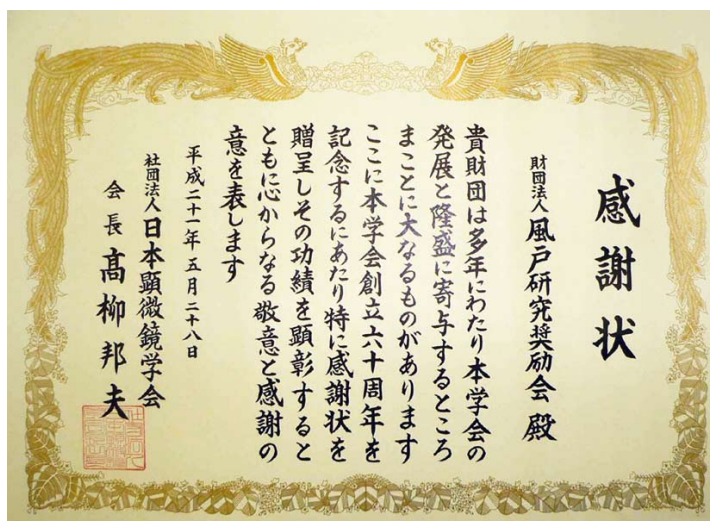 感謝状
財団法人 風戸研究奨励会 殿
貴財団は多年にわたり本学会の
発展と隆盛に寄与するところ
まことに大なるものがあります
ここに本学会創立六十周年を
記念するにあたり特に感謝状を
贈呈しその功績を顕彰すると
ともに心からなる敬意と感謝の
意を表します
平成二十一年五月二十八日
社団法人 日本顕微鏡学会
会長 髙柳邦夫